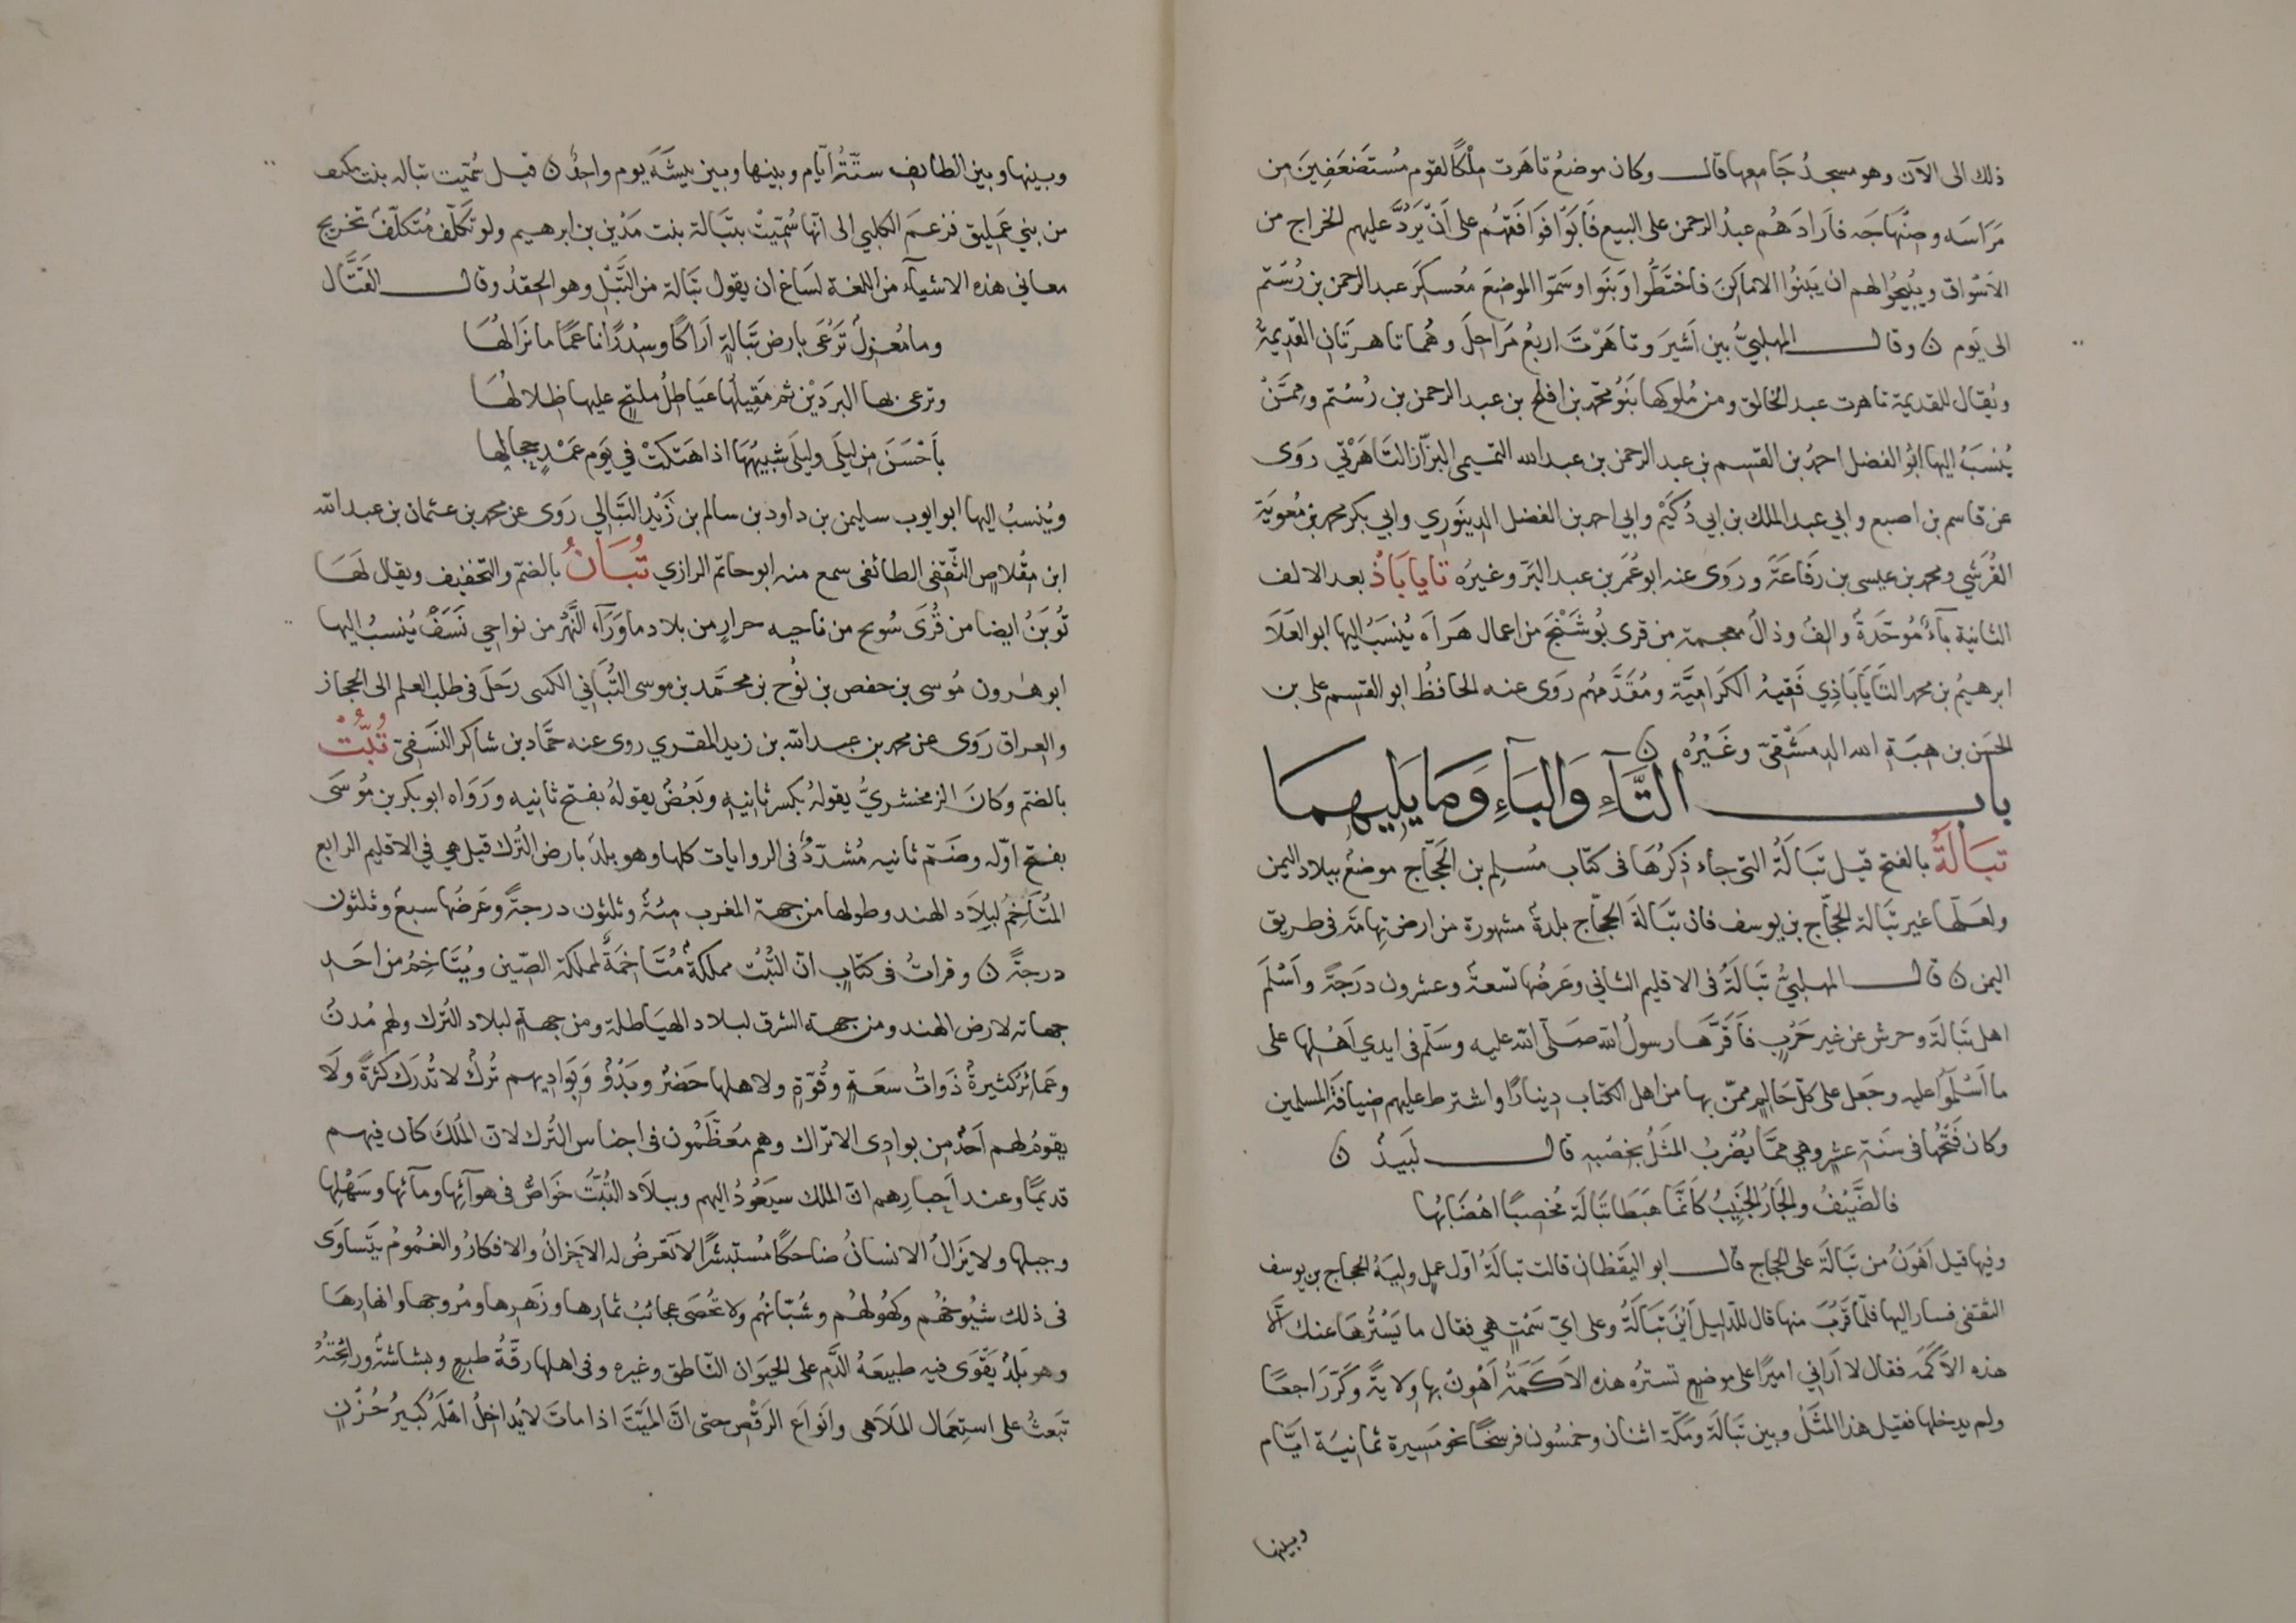 ذلك الى الآن وهو مسجدُ جَامعها قال وكان موضعُ تاهَرت مِلْكًا لقوم مُستَضعَفِينَ من
مَرَاسَه وصِنْهَاجَه فاَرادَهُم عبدُ الرحمن على البيع فَابَوْا فوَافَقَهُم على اَنْ يَردَّ عليهم الخراج من
الاَسْواق ويُبيحُوا لهم ان يَبنُوا الامَاكنَ فاختَطُّوا وَبَنَوا وسَمّوا الموضعَ مُعسكَرَ عبد الرحمن بن رُستَم
الى يَوم ن وقال المهلبيُّ بين اَشيرَ وتاهَرْتَ اربعُ مَرَاحِلَ وهُما تاهرتَان القديمَةُ
ويُقال للقديمة تاهرت عبد الخالق ومن مُلوكها بَنُو محمّد بن افلح بن عبد الرحمن بن رُستم وممَّنْ
يُنسَبُ اليها ابُو الفضل احمدُ بن القسم بن عبد الرحمن بن عبد الله التميمى البزّاز التَاهَرْتي رَوَى
عن قاسم بن اصبع وابي عبد الملك بن ابي دُكَيْم وابي احمد بن الفضل الدينَوَرِي وابي بكر محمد بن مُعويَة
القُرَشي ومحمد بن عيسى بن رفَاعَةَ ورَوى عنه ابو عُمَر بن عبد البَرّ وغيرُه تَايابَاذُ بعد الالف
الثانية بآءٌ مُوحّدَةٌ والفٌ وذالٌ معجمة من قرى بُوشَنْجَ من اعمال هَرَاه يُنسَبُ اليها ابو العَلَآ
ابرهيمُ بن محمد التَايَابَاذِي فَقيهُ الكَرَاميَّة ومُقَدَّمهُم رَوَى عنه الحافظُ ابو القسم على بن
الحسَن بن هبَةِ الله الدمَشْقىّ وغَيْرُهُ ن
باب التَّآءِ وَالبَآءِ وَمَا يَلِيهِمَا
تبَالَةُ بالفتح قيل تَبَالَةُ التى جاء ذِكرُهَا فى كتاب مُسلِم بن الحجّاج موضعٌ ببلاد اليمن
ولعَلّها غير تبَالة الحجّاج بن يوسف فان تَبَالَةَ الحجّاج بلدةٌ مشهورة من ارض تِهامَةَ فى طريق
اليمن ن قال المهلبيُّ تَبَالَةُ فى الاقليم الثانى وعَرضُها تسعةٌ وعشرون دَرَجَةً واَسْلَمَ
اهل تَبَالَةَ وحرش عن غير حَرْبٍ فاَقَرَّها رسولُ الله صَلّى الله عليه وسَلّم فى ايدي اَهْلِها على
ما اَسْلَمُوا عليه وجَعل على كلّ حَالِمٍ ممّن بها من اهل الكتاب دينارًا واشترط عليهم ضيافَةَ المسلمين
وكان فَتْحُها فى سَنَة عشر وهي ممَّا يُضْربُ المثَلُ بخصْبه قال لَبيدٌ ن
فالضَّيْفُ والجَارُ الجَنيبُ كاَنَّمَا هَبَطَا تبَالَةَ مُخصِبًا اهْضَابُها
وفيها قيل اَهْوَنُ من تَبَالَةَ على الحجاج قال ابو اليَقظان قالت تبَالَةُ اوّل عملٍ وليَهُ الحجّاج بن يوسف
الثقفى فسار اليها فلمّا قَرُبَ منها قال للدّليل اَيْنَ تَبَالَةُ وعلى ايّ سَمْتٍ هي فقال ما يَسْتُرُهَا عنك اِلّا
هذه الاَكَمَه فقال لا اَرَانِي اميرًا على موضعٍ تسترُه هذه الاَكَمَةُ اَهْوِنْ بها وِلايةً وكَرّ رَاجعًا
ولم يدخلها فقيل هذا المثَلُ وبين تَبَالَة ومَكّة اثنان وخمسُون فرسخًا نحو مَسيرة ثمانيَة ايّام
وبينها
وبينها وبين الطائف ستّةُ ايّام وبينها وبين بيشَةَ يوم واحدٌ ن قيل سُمّيت تباله بنت مكنف
من بني عمَليق فزعمَ الكلبي الى انّها سُمّيتْ بتَبَالة بنت مَدْين بن ابرهيم ولو تَكَلّف مُتَكلّفٌ تخريج
معاني هذه الاشيآء من اللغة لسَاغ ان يقول تَبَالة من التَّبْل وهو الحقدُ وقال القَتَّال
وما مُغزِلٌ تَرْعَى بارض تَبَالةٍ اَرَاكًا وسِدْرًا نَاعمًا ما نَزَالهُا
وترعى بها البرَدَيْن ثم مَقِيلُها غيَاطِلُ ملتجٍّ عليها ظِلالُهَا
باَحْسَنَ من ليَلَى وليلَى شبيهُهَا اذا هَتَكَتْ في يَوم عَمْدٍ حِجَالها
ويُنسبُ اليها ابو ايوب سليمن بن داود بن سالم بن زَيْد التَّبَالي رَوَى عن محمد بن عثمان بن عبد الله
ابن مِقْلاص الثّقفى الطائفى سمع منه ابو حاتم الرازي تُبَانُ بالضمّ والتخفيف ويقال لهَا
تُوبَنُ ايضا من قُرَى سُوبخ من ناحيه خزار من بلاد ما وَرَآء النَّهْر من نواحي نَسَفَ يُنسبُ اليها
ابو هٰرون مُوسى بن حفص بن نُوح بن محمَّد بن موسى التُّبَاني الكسى رَحَلَ فى طلب العلم الى الحجاز
والعراق رَوَى عن محمد بن عبد الله بن زيد المقري روى عنه حَمَّاد بن شاكر النسَفىّ تُبَّتُ
بالضمّ وكانَ الزمخشريُّ يقولُهُ بكسر ثانيهِ وبَعْضٌ يقولهُ بفتح ثانيه ورَوَاه ابو بكر بن مُوسَى
بفتح اوّله وضَمّ ثانيه مُشدّدٌ فى الروايات كلها وهو بلدٌ بارض التُرك قيل هي في الاقليم الرابع
المُتَاخِمُ لبِلَاد الهند وطولها من جهة المغرب مئةٌ وثلثون درجةً وعَرضُها سبعٌ وثلثون
درجةً ن وقراتُ فى كتَابٍ انّ التُّبّتَ مملكةٌ مُتَاخمَةٌ لمملكة الصّين ويُتَاخِمُ من احَد
جهاته لارض الهند ومن جهة الشرق لبلاد الهياطلة ومن جهةٍ لبلاد التُرك ولهم مُدنٌ
وعَمائرُ كثيرةٌ ذَوَاتُ سعَةٍ وقُوّةٍ ولاهلها حَضَرٌ وبَدْوٌ وبَوَاديهم تُركٌ لا تُدْرَكُ كثرَةً ولَا
يقومُ لهم اَحَدٌ من بوادى الاتراك وهم مُعَظّمُون فى اجناس التُرك لان المُلكَ كان فيهم
قديمًا وعند اَحبارِهم انّ الملك سيَعُودُ اليهم وببلَاد التُّبّتُ خَوَاصُّ فى هوآئِها ومآئها وسَهْلِها
وجبلها ولا يَزَالُ الانسانُ ضاحكًا مُستبشرًا لا تَعْرضُ له الاَحْزانُ والافكارُ والغمُومُ يتَساوَى
فى ذلك شُيُوخُهُم وكهُولُهُم وشُبّانُهُم ولا تُحْصَى عجائبُ ثمارها وزَهرِها ومُروجها وانهارِهَا
وهو بَلَدٌ يَقْوَى فيه طبيعَهُ الدَّمِ على الحيَوَان النّاطق وغيره وفى اهلها رِقّةُ طبعٍ وبشاشةٌ وراَئحِيّةٌ
تَبعَثُ على استِعمَال المَلَاهى واَنوَاع الرّقْصِ حتى انّ المَيّتَ اذا ماتَ لا يُداخِلُ اهْلَهُ كَبيرُ حُزْنٍ